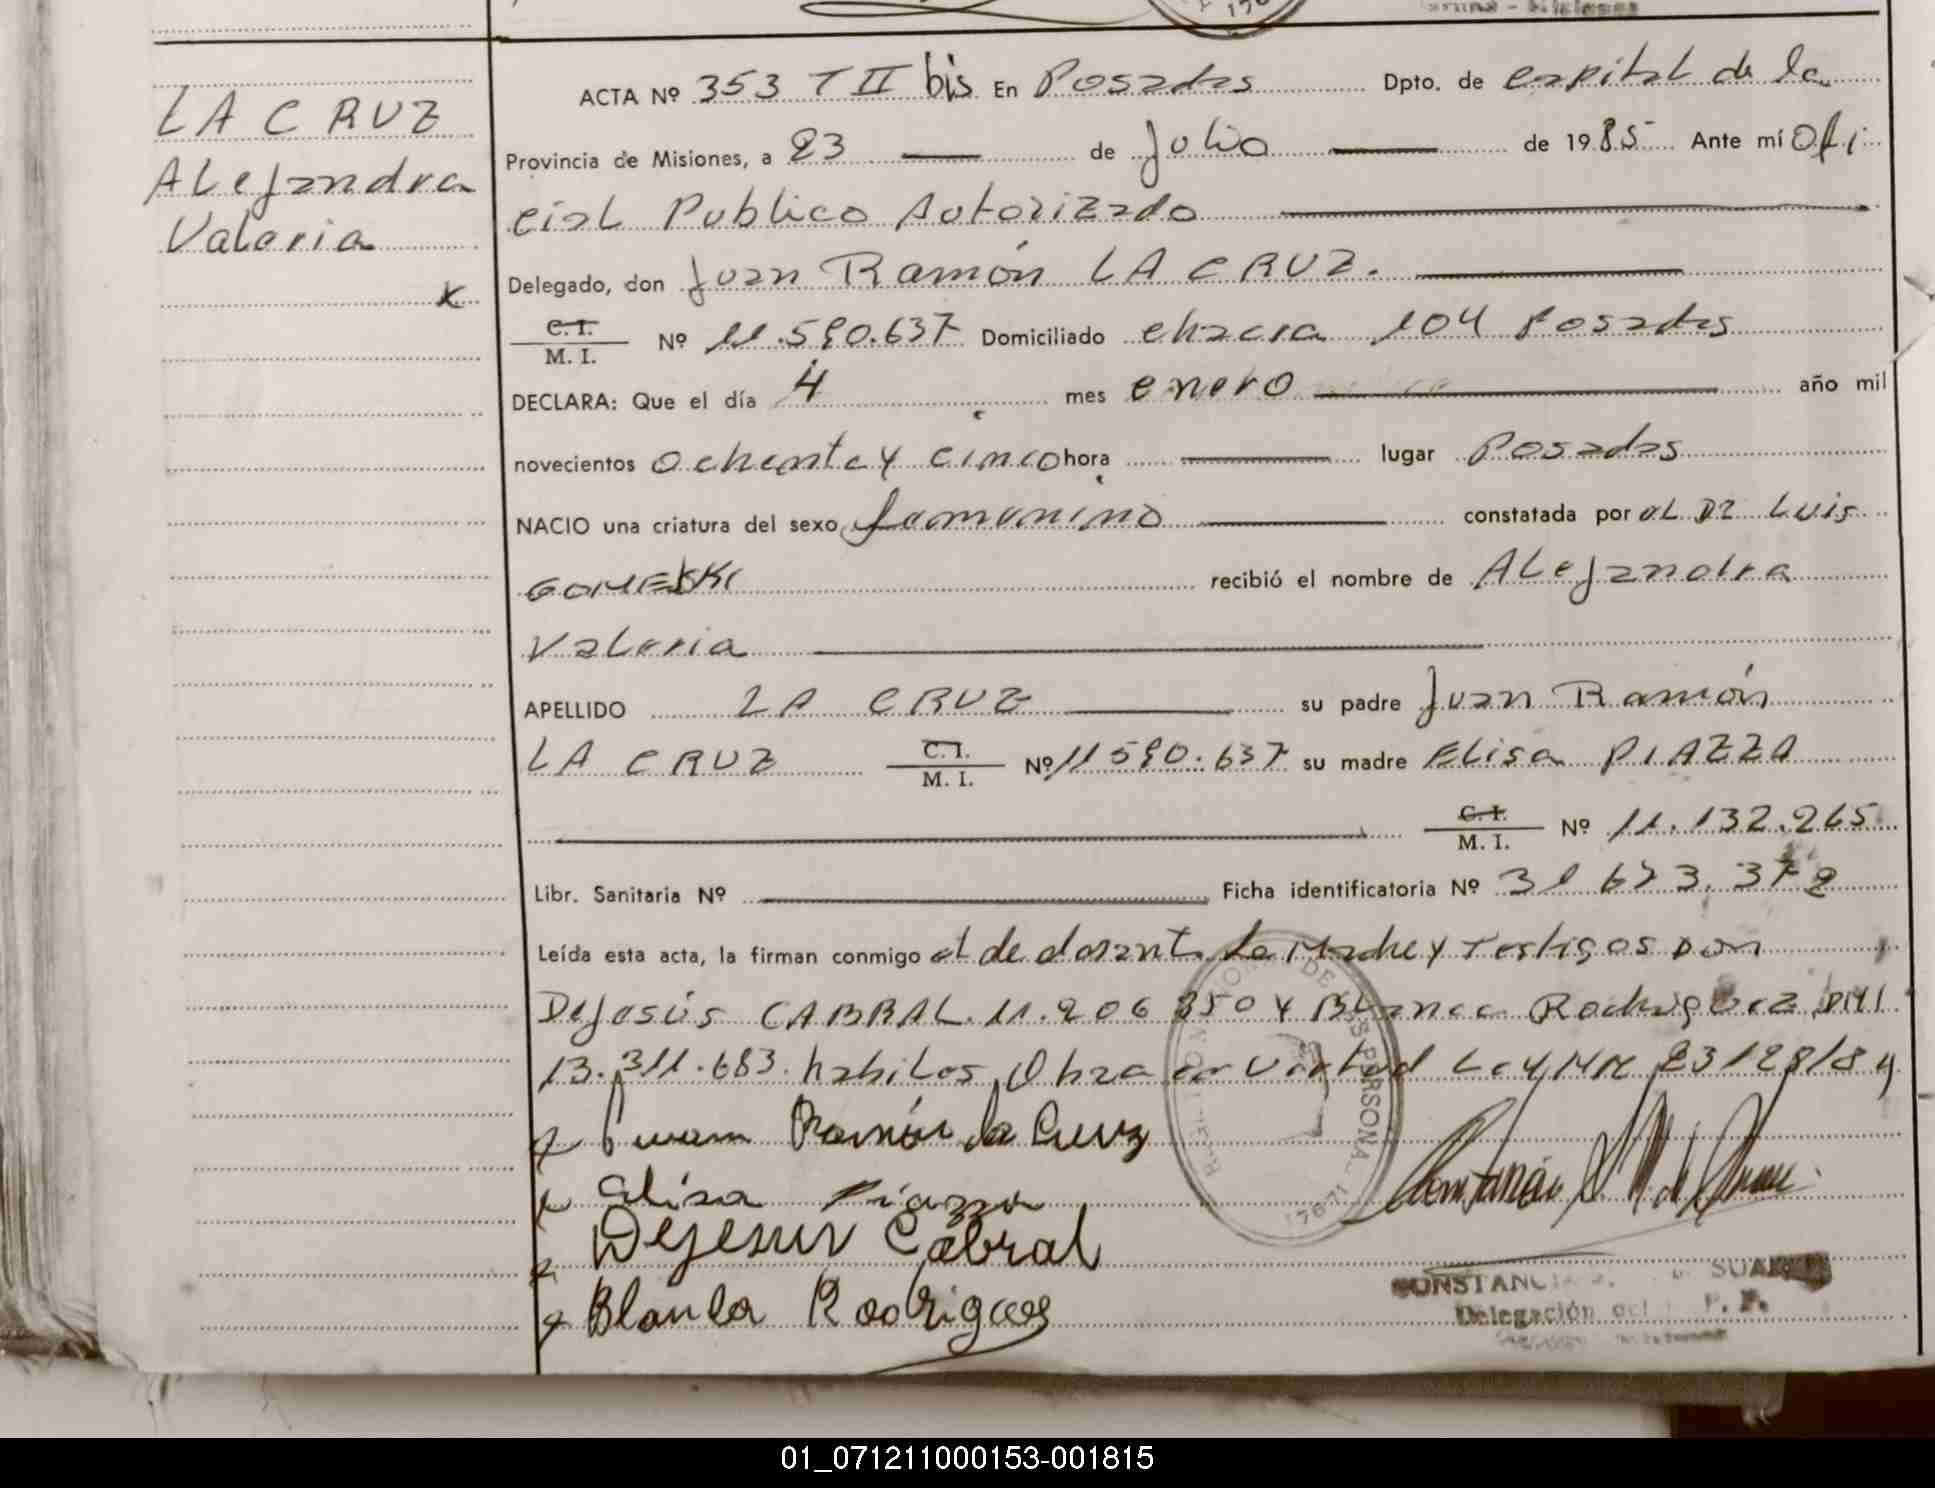 LA CRUZ
Alejandra
Valeria
x
ACTA Nº 353 T II bis En Posadas Dpto. de capital de la
Provincia de Misiones, a 23 de Julio de 1985 Ante mí Ofi
cial Publico Autorizado
Delegado, don Juan Ramón LA CRUZ.
C. I.
M. I. Nº 11.590.637 Domiciliado chacra 104 Posadas
DECLARA: Que el día 4 mes enero año mil
novecientos ochenta y cinco hora lugar Posadas
NACIO una criatura del sexo femenino constatada por el Dr Luis
recibió el nombre de Alejandra
Valeria
APELLIDO LA CRUZ su padre Juan Ramón
LA CRUZ C. I. M. I. Nº 11590.637 su madre Elisa PIAZZA
C. I.
M. I. Nº 11.132.265
Libr. Sanitaria Nº Ficha identificatoria Nº 31 673.372
Leída esta acta, la firman conmigo el declarante La Madre y Testigos Don
DeJesús CABRAL. 11.206 850 y Blanca Rodriguez DMI
13.311.683. habiles en virtud Ley 23128/84
Juan Ramón la Cruz
Elisa Piazza
Dejesus Cabral
Blanca Rodrigues
PERSONAS
Delegación
01_071211000153-001815